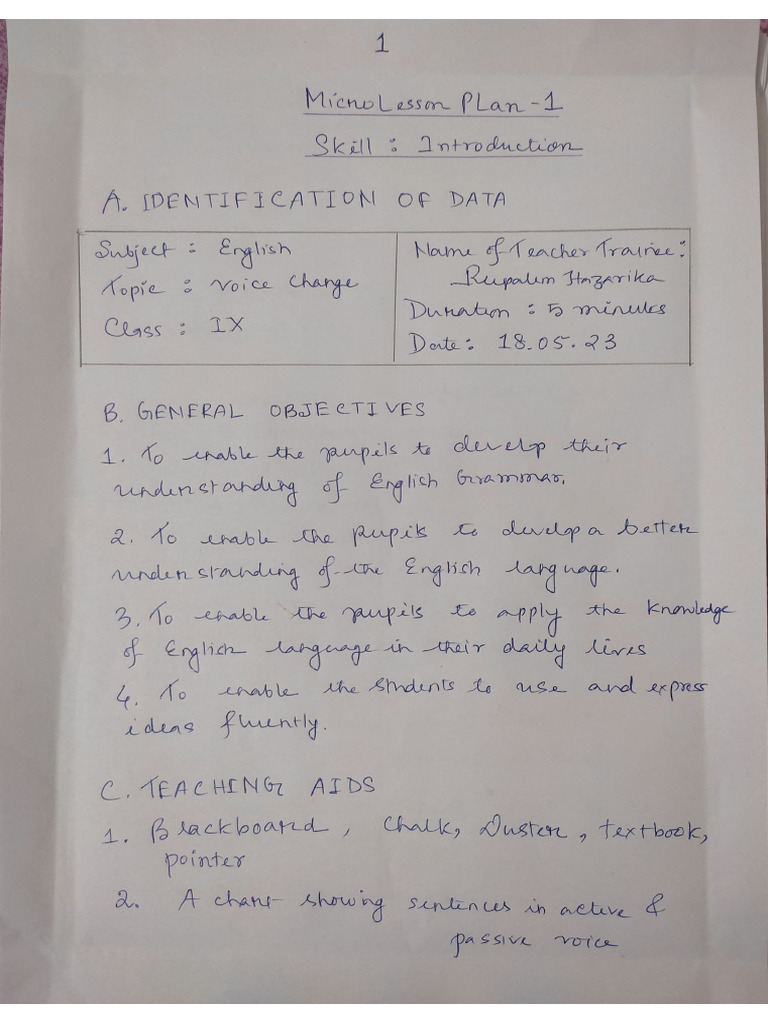 1
Micro Lesson Plan -1
Skill : Introduction
A. IDENTIFICATION OF DATA
Subject : English
Topic : Voice Change
Class : IX
Name of Teacher Trainee :
Rupalim Hazarika
Duration : 5 minutes
Date : 18.05.23
B. GENERAL OBJECTIVES
1. To enable the pupils to develop their
understanding of English Grammar.
2. To enable the pupils to develop a better
understanding of the English language.
3. To enable the pupils to apply the knowledge
of English language in their daily lives
4. To enable the students to use and express
ideas fluently.
C. TEACHING AIDS
1. Blackboard, Chalk, Duster, textbook,
pointer
2. A chart showing sentences in active &
passive voice